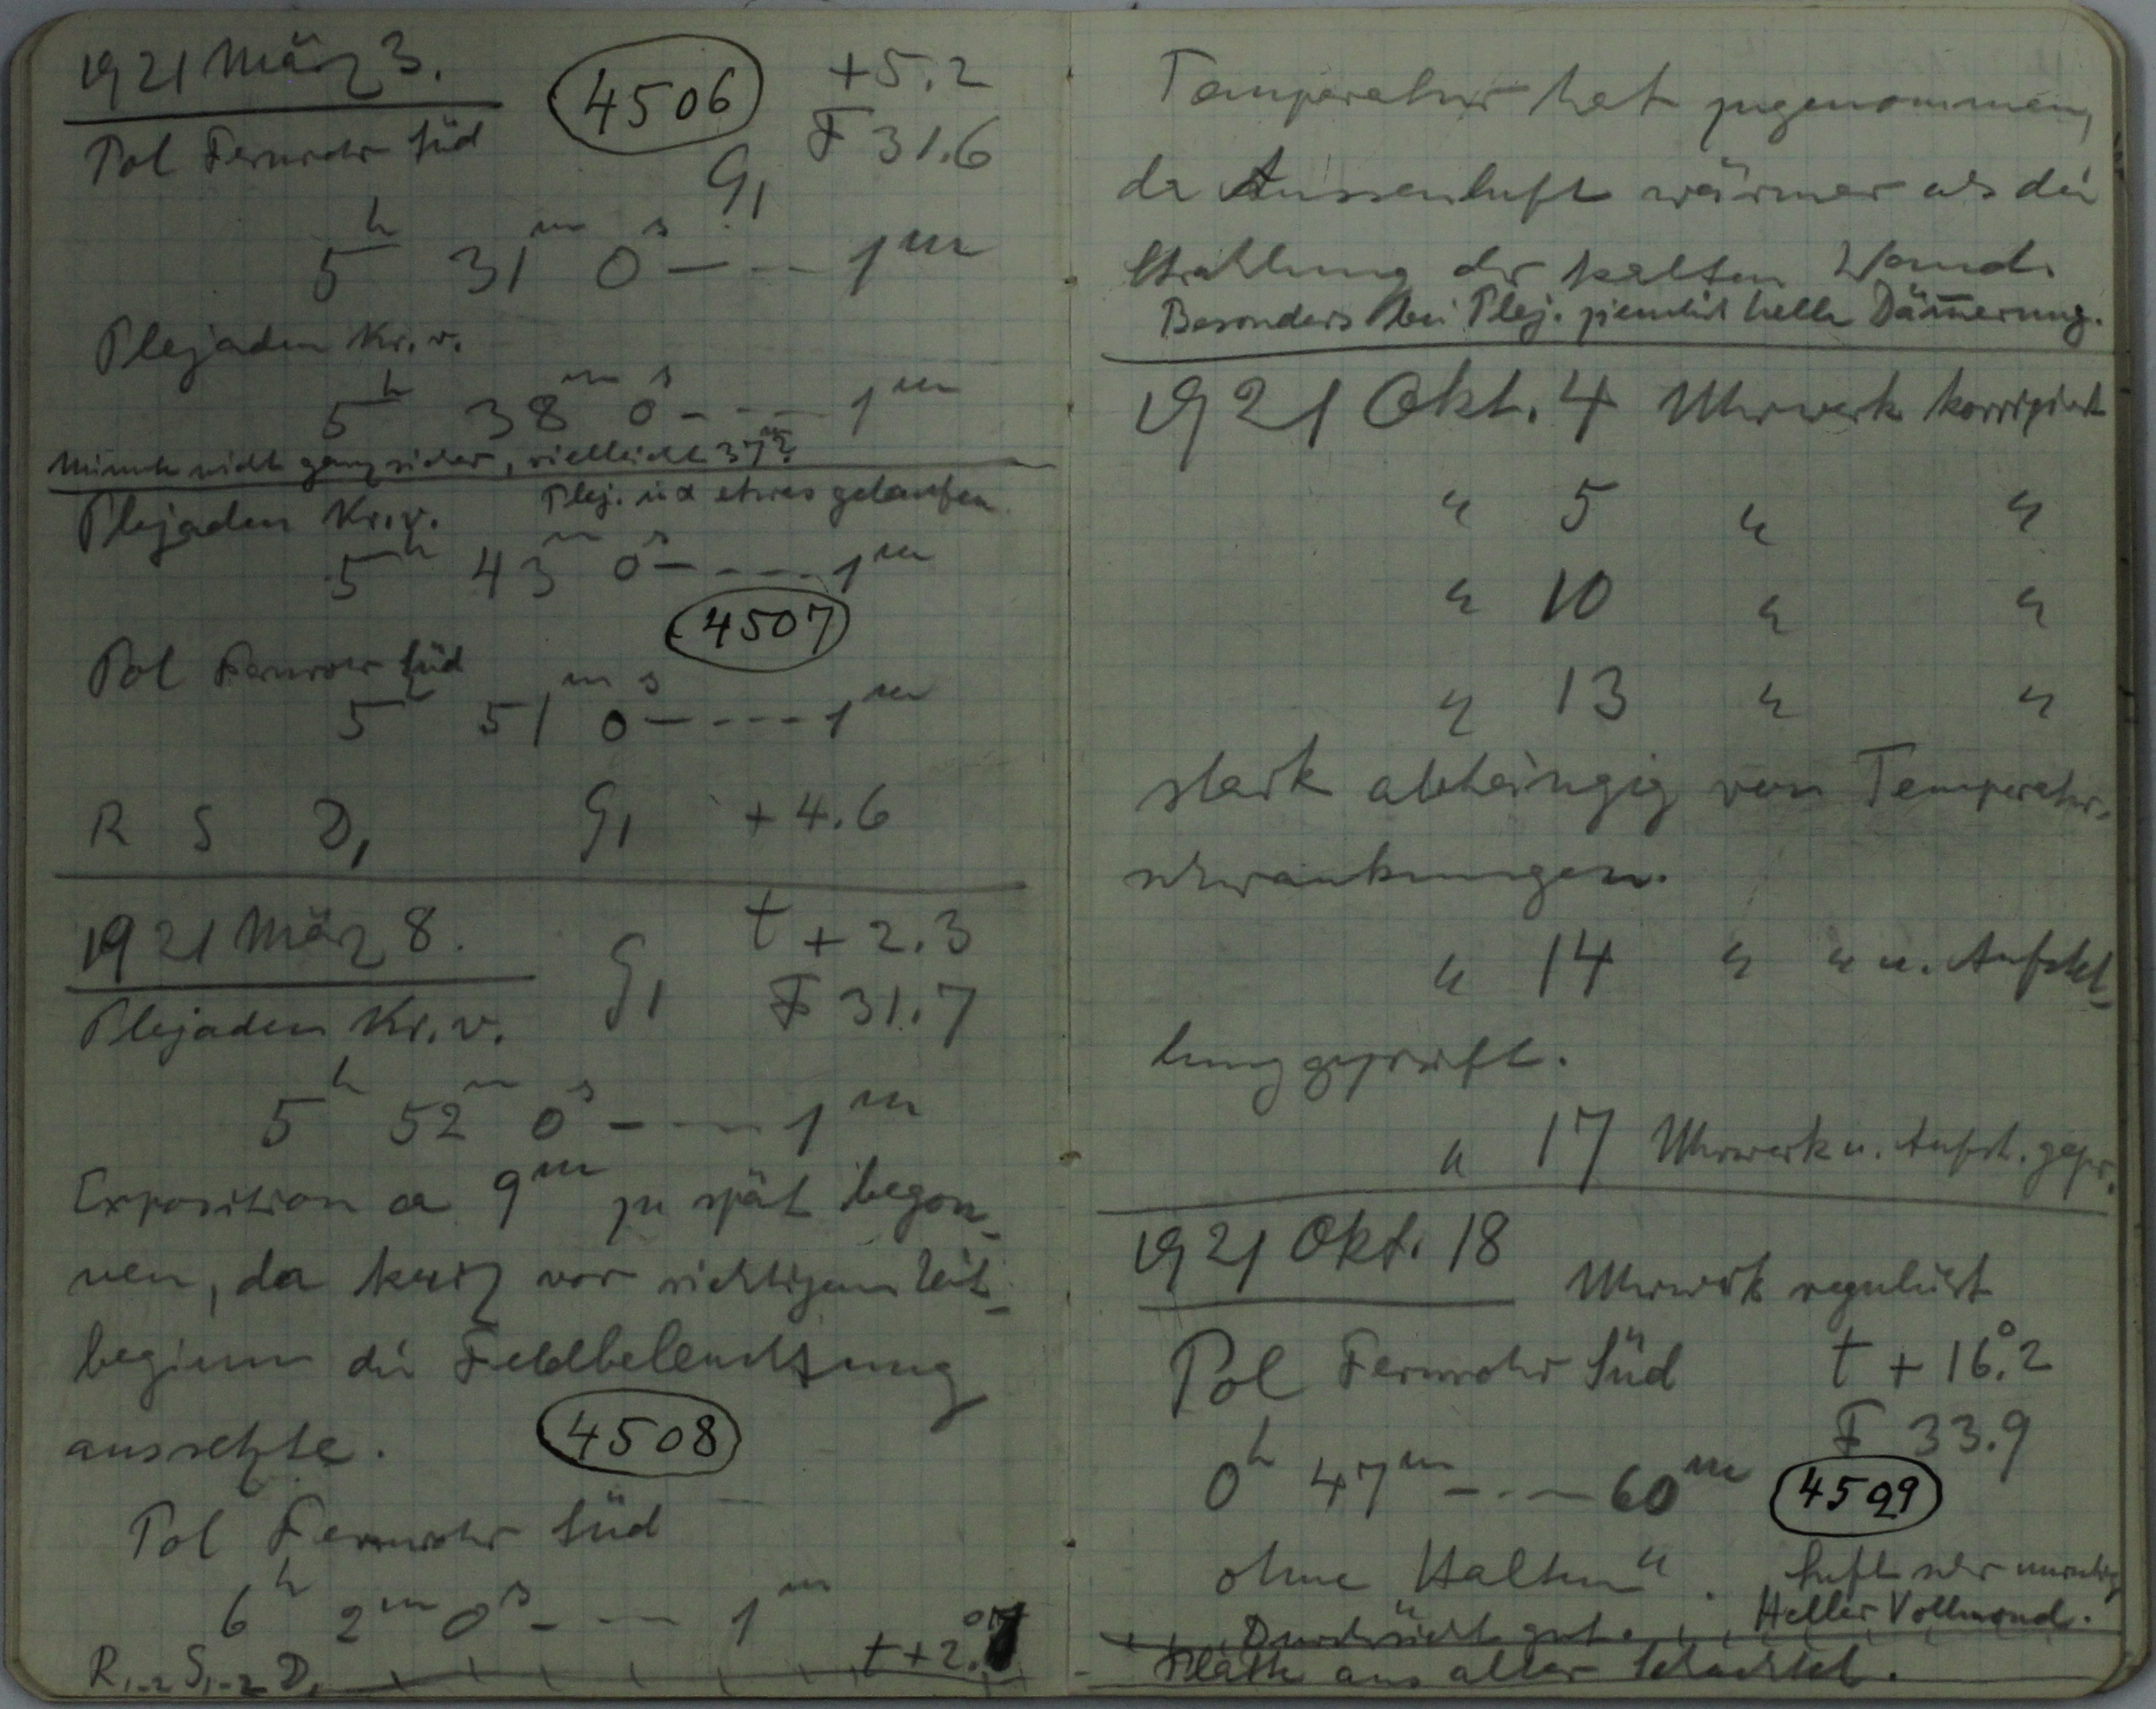 1921 März 3.
4506
+5.2
Pol Fernrohr Süd
F 31.6
G1
5h 31m 0s – – – 1m
Plejaden Kr. v.
5h 38m 0s – – – 1m
Minute nicht ganz sicher, vielleicht 37m?
Plejaden Kr. v. Plej. in α etwas gelaufen
5h 43m 0s – – – – 1m
4507
Pol Fernrohr Süd
5h 51m 0s – – – – 1m
R S D1 G1 +4.6
1921 März 8. G1 t +2.3
Plejaden Kr. v. F 31.7
5h 52m 0s – – – 1m
Exposition ca 9m zu spät begon-
nen, da kurz vor richtigem Zeit-
beginn die Feldbeleuchtung
aussetzte. 4508
Pol Fernrohr Süd
6h 2m 0s – – – 1m
R1-2 S1-2 D1 t +2.
Temperatur hat zugenommen,
da Aussenluft wärmer als die
Strahlung der kalten Wand.
Besonders bei Plej. ziemlich helle Dämmerung.
1921 Okt. 4 Uhrwerk korrigiert
" 5 " "
" 10 " "
" 13 " "
stark abhängig von Temperatur-
schwankungen.
" 14 " " u. Aufstel-
lung geprüft.
" 17 Uhrwerk u. Aufst. gepr.
1921 Okt. 18 Uhrwerk reguliert
Pol Fernrohr Süd t +16.°2
F 33.9
0h 47m – – – 60m 4509
ohne Halten". Luft sehr unruhig
Durchsicht gut. Heller Vollmond.
Platte aus alter Schachtel.